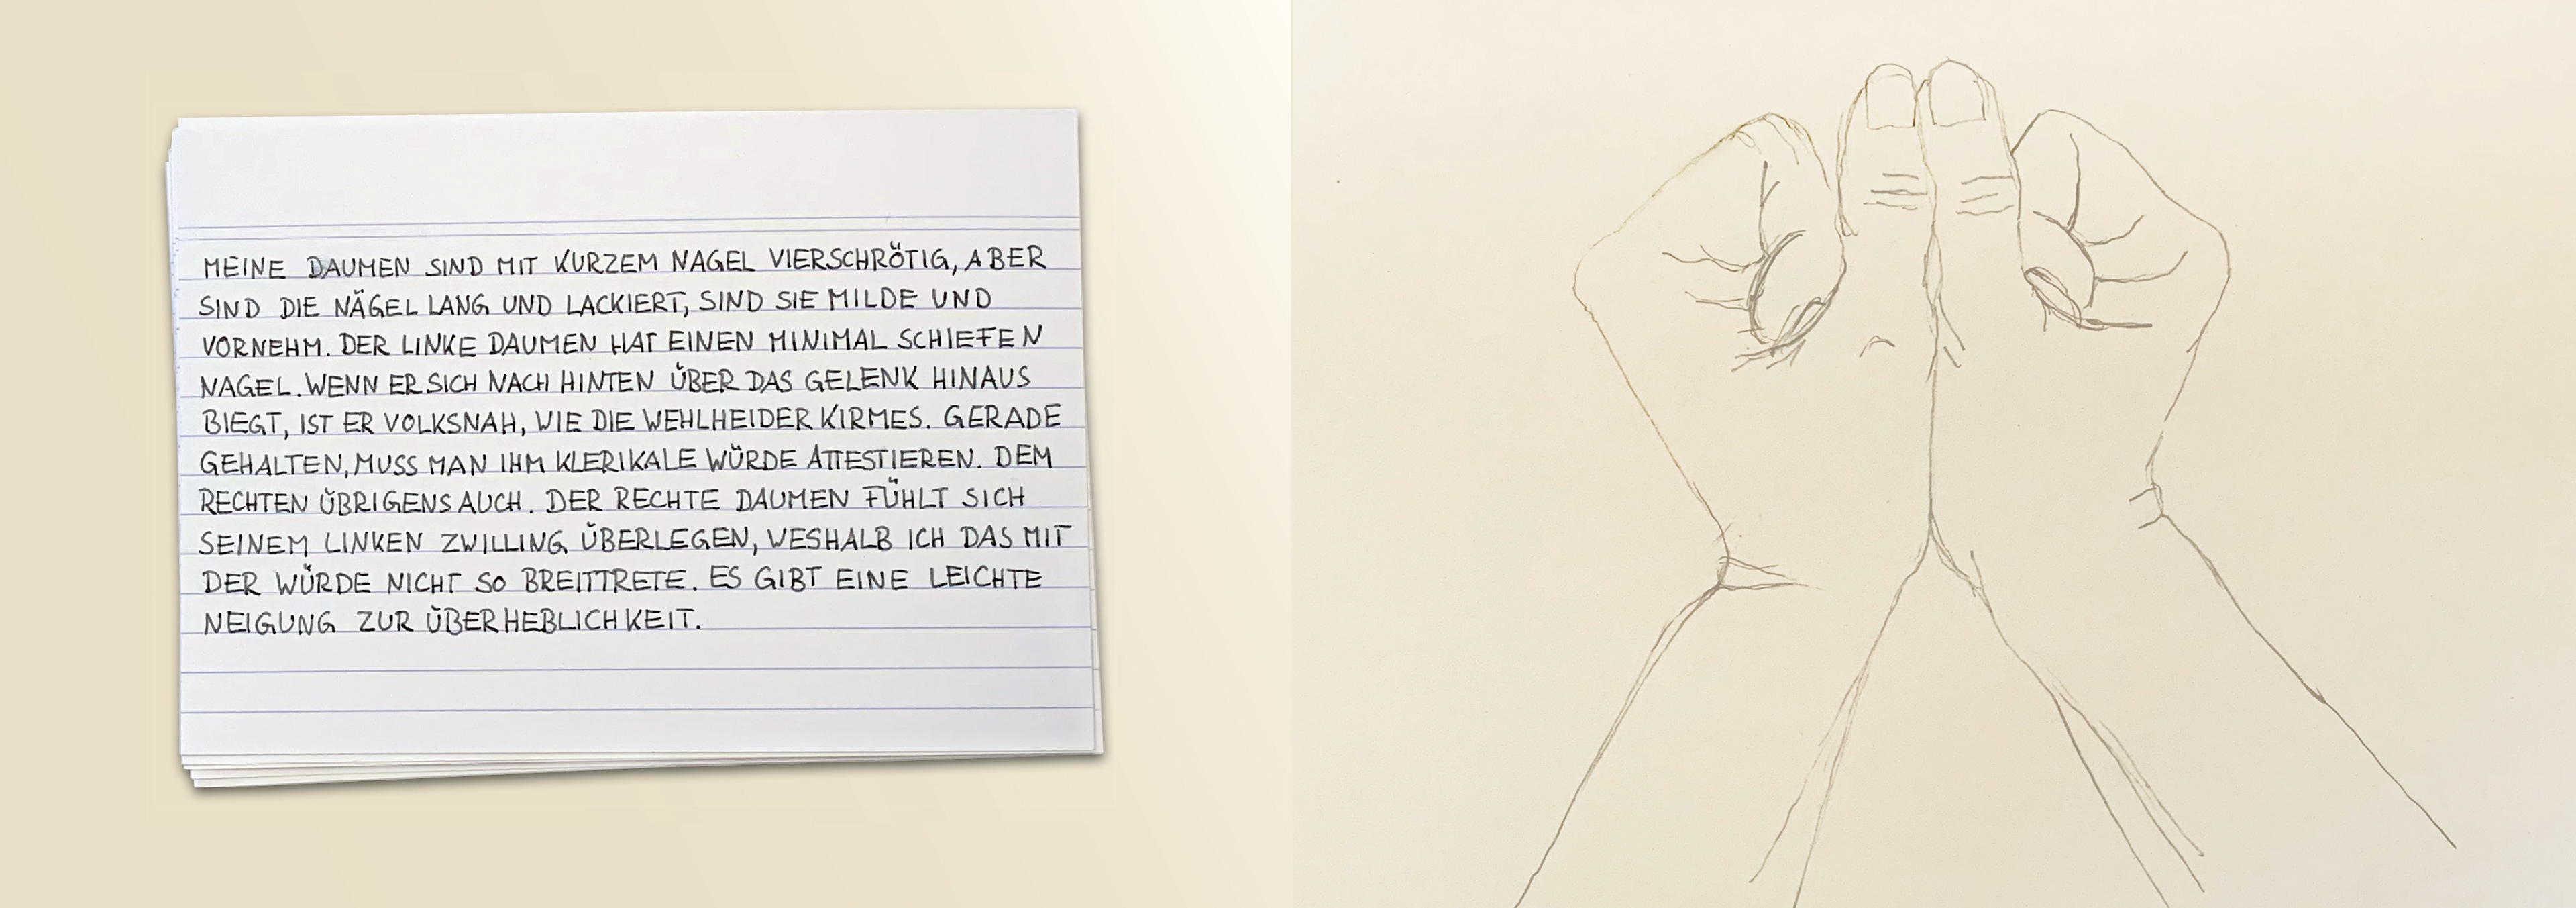 MEINE DAUMEN SIND MIT KURZEM NAGEL VIERSCHRÖTIG, ABER
SIND DIE NÄGEL LANG UND LACKIERT, SIND SIE MILDE UND
VORNEHM. DER LINKE DAUMEN HAT EINEN MINIMAL SCHIEFEN
NAGEL. WENN ER SICH NACH HINTEN ÜBER DAS GELENK HINAUS
BIEGT, IST ER VOLKSNAH, WIE DIE WEHLHEIDER KIRMES. GERADE
GEHALTEN, MUSS MAN IHM KLERIKALE WÜRDE ATTESTIEREN. DEM
RECHTEN ÜBRIGENS AUCH. DER RECHTE DAUMEN FÜHLT SICH
SEINEM LINKEN ZWILLING ÜBERLEGEN, WESHALB ICH DAS MIT
DER WÜRDE NICHT SO BREITTRETE. ES GIBT EINE LEICHTE
NEIGUNG ZUR ÜBERHEBLICHKEIT.